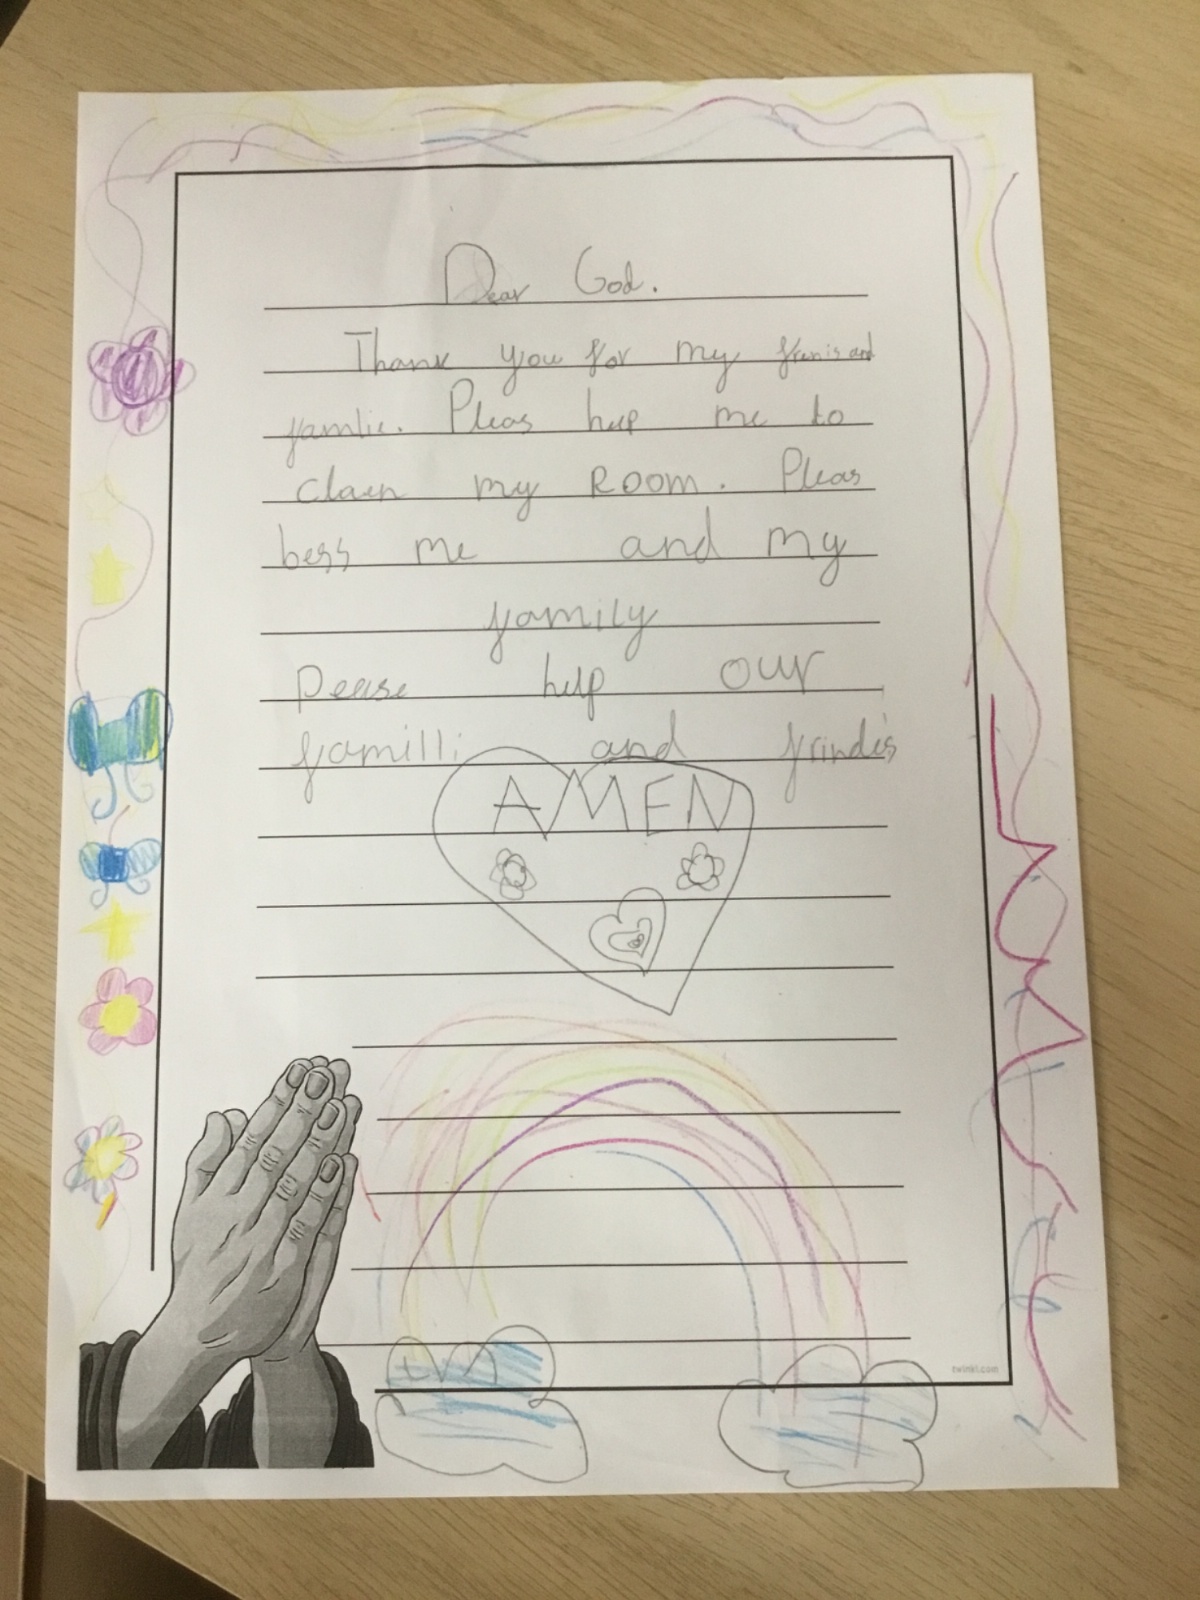 Dear God.
Thank you for my frenis and
famlie. Pleas hep me to
claen my ROOM. Pleas
bess me and my
family
Pease help our
familli and frindes
AMEN
twinkl.com